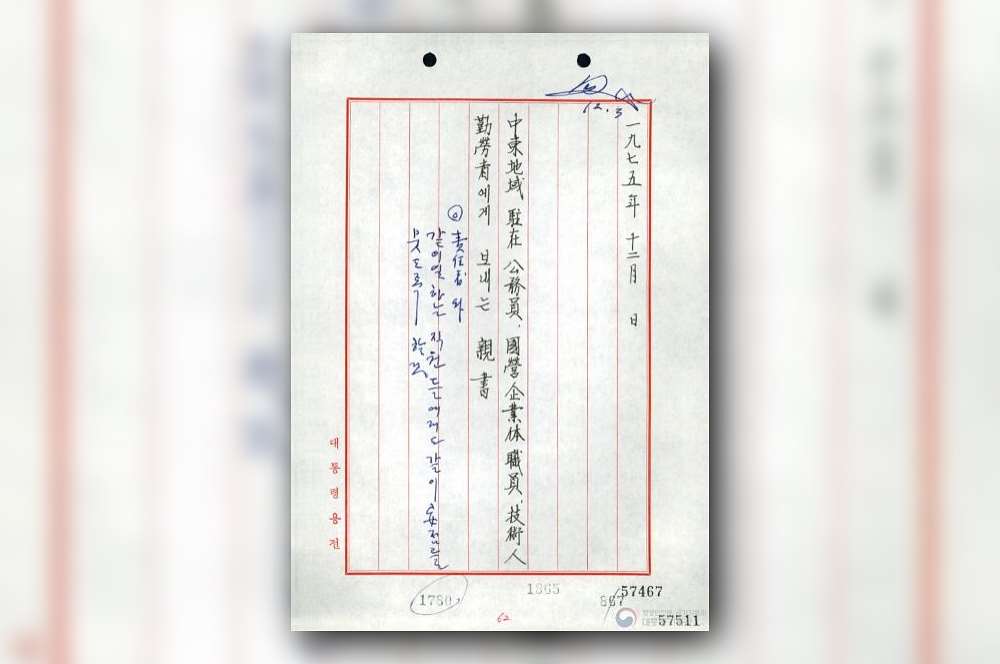 12. 3
一九七五年 十二月 日
中東地域 駐在 公務員, 國營企業体 職員, 技術人
勤勞者에게 보내는 親書
責任者와
같이 일하는 직원들에게 다 같이
할 것
대통령용전
1780
1365
867
57467
57511
62